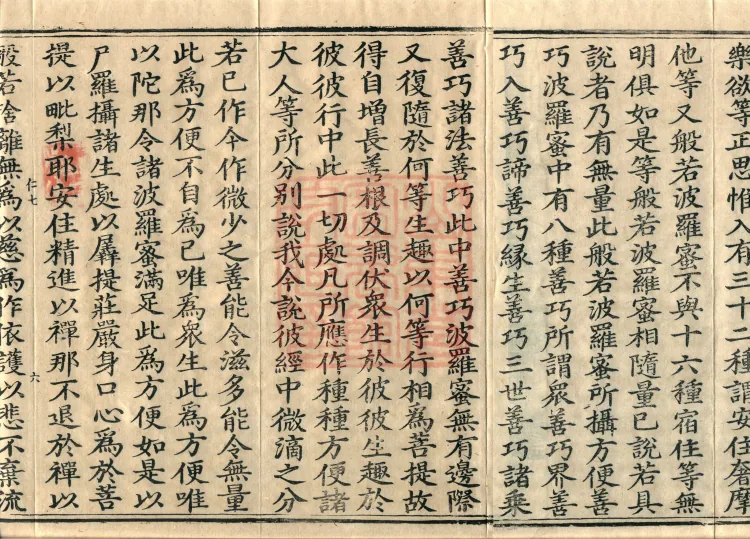 樂欲等正思惟入有三十二種謂安住奢摩
他等又般若波羅蜜不與十六種宿住等無
明俱如是等般若波羅蜜相隨量已說若具
說者乃有無量此般若波羅蜜所攝方便善
巧波羅蜜中有八種善巧所謂眾善巧界善
巧入善巧諦善巧緣生善巧三世善巧諸乘
善巧諸法善巧此中善巧波羅蜜無有邊際
又復隨於何等生趣以何等行相爲菩提故
得自增長善根及調伏眾生於彼彼生趣於
彼彼行中此一切處凡所應作種種方便諸
大人等所分別說我今說彼經中微滴之分
若已作今作微少之善能令滋多能令無量
此爲方便不自爲已唯爲眾生此爲方便唯
以陀那令諸波羅蜜滿足此爲方便如是以
尸羅攝諸生處以羼提莊嚴身口心爲於菩
提以毗梨耶安住精進以禪那不退於禪以
仁七 六
般若捨離無爲以慈爲作依護以悲不棄流